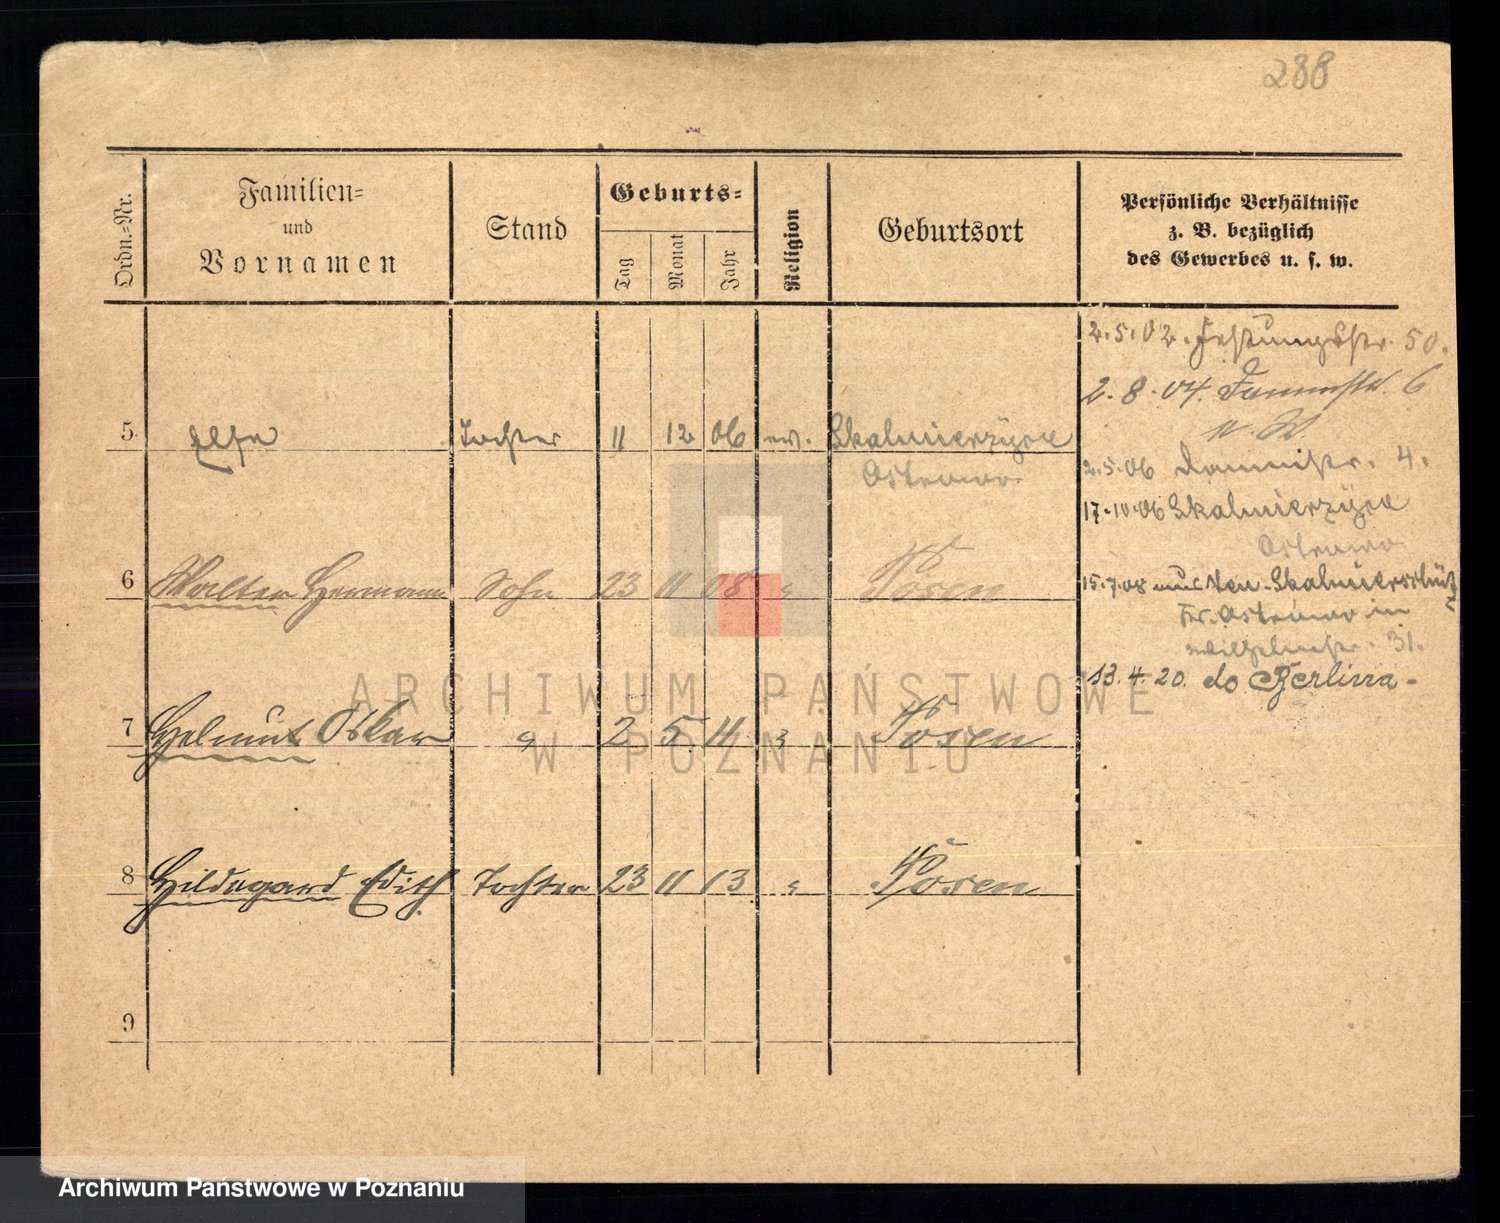 288
Ordn.-Nr.
Familien-
und
Vornamen
Stand
Geburts-
Tag
Monat
Jahr
Religion
Geburtsort
Persönliche Verhältnisse
z. B. bezüglich
des Gewerbes u. s. w.
2.5.02. Festungsstr. 50.
2.8.04. 6
5. Tochter 11 12 06 ev. Skalmierzyce
Ostrowo
2.5.06 4.
17.10.06 Skalmierzyce
Ostrowo
6 Walter Hermann Sohn 23 11 08 " Posen
15.7.08 aus Neu-Skalmierschütz
Kr. Ostrowo in
Wilhelmstr. 31.
13.4.20. do Berlina-
7 Helmut Oskar " 2 5 11 " Posen
8 Hildegard Edith Tochter 23 11 13 " Posen
9
ARCHIWUM PAŃSTWOWE
W POZNANIU
Archiwum Państwowe w Poznaniu